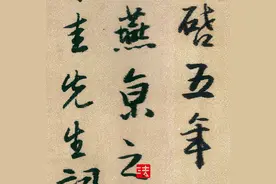 啓五年
燕京之
圭先生詞